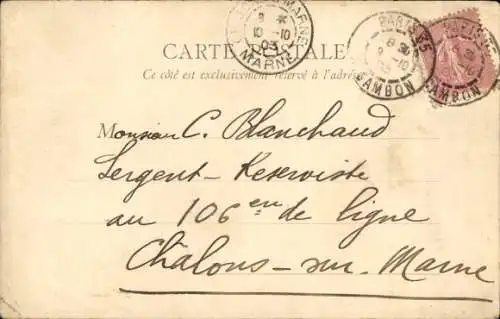 CARTE POSTALE
Ce côté est exclusivement réservé à l'adresse
MARNE
8
10 -10
03
MARNE
PARIS
8
9 -10
CAMBON
Monsieur C. Blanchaud
Sergent-Reserviste
au 106 em de ligne
Châlons-sur-Marne